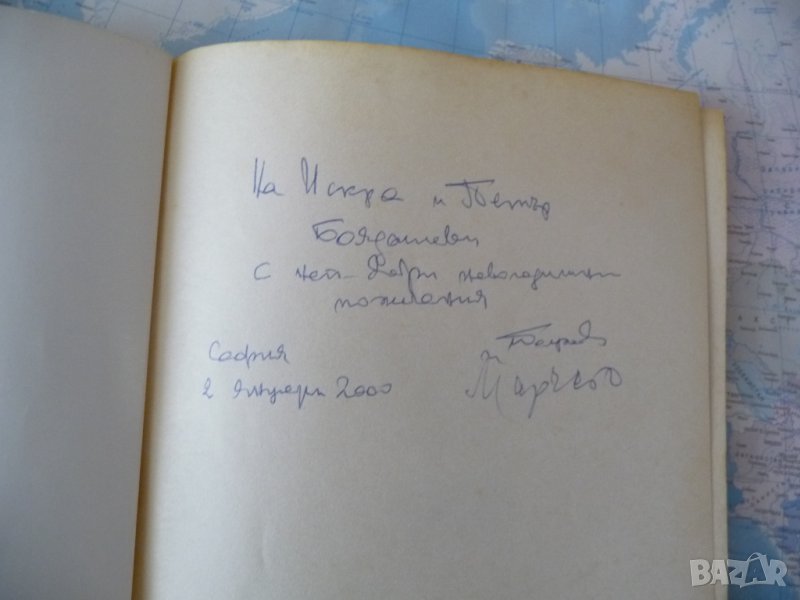 На Искра и Петър
Бояджиеви
с най-добри новогодишни
пожелания
София
2 януари 2000
и
BAZAR